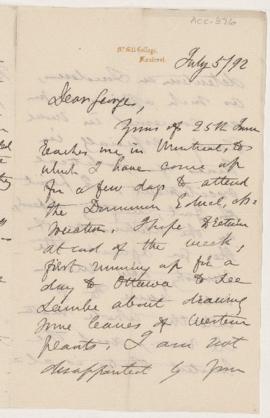 ACC-976
McGill College,
Montreal.
July 5/92
Dear George,
Yours of 25th June
reaches me in Montreal, to
which I have come up
for a few days to attend
the Dominion Educl. As-
sociation. I hope to return
at end of the week,
first running up for a
day to Ottawa to see
Lambe about drawing
some leaves of Western
plants. I am not
disappointed by your